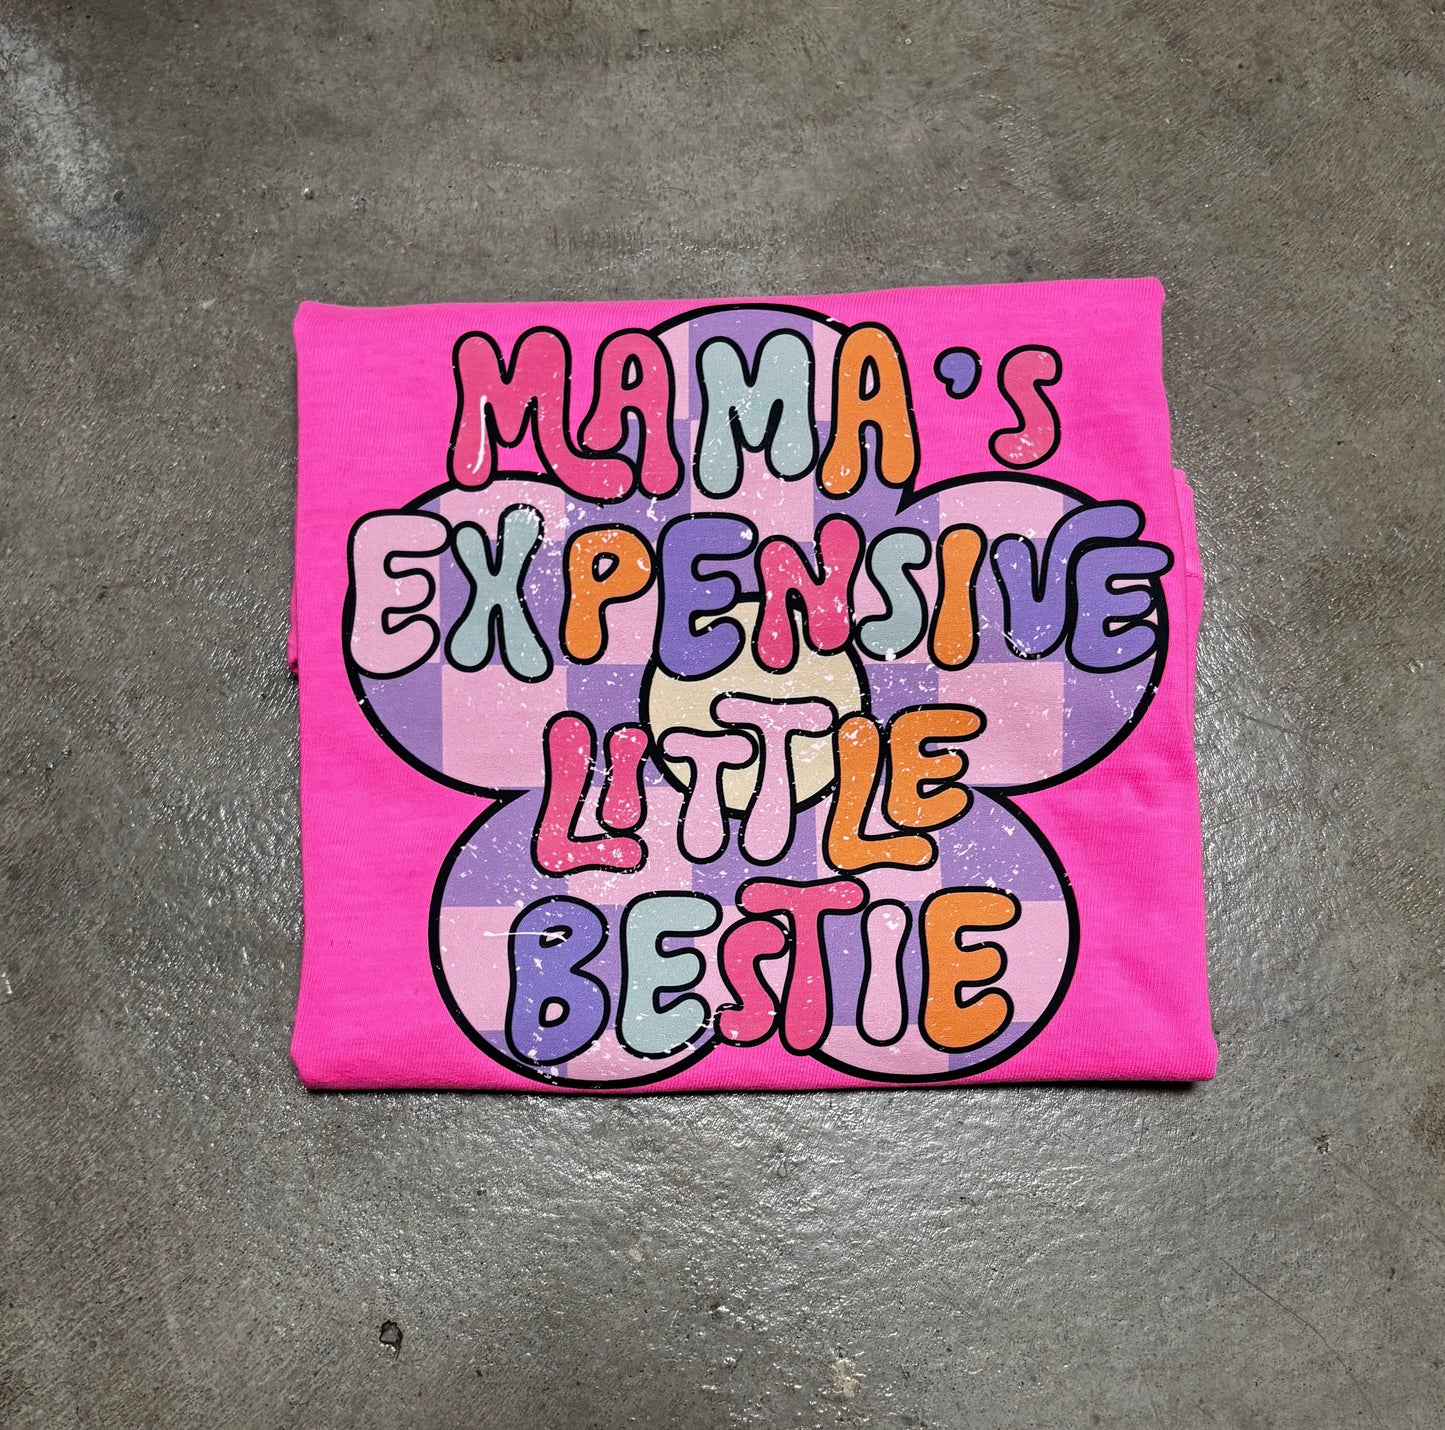 MAMA'S
EXPENSIVE
LITTLE
BESTIE